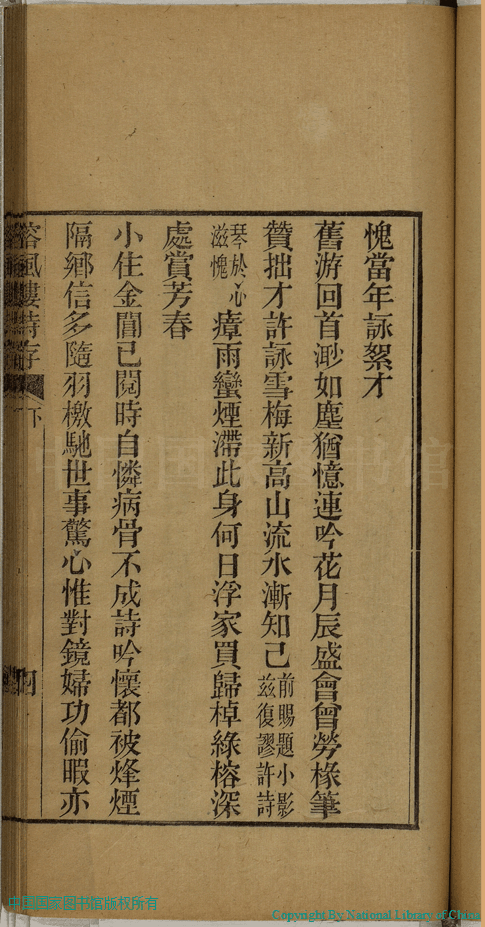 愧當年詠絮才
舊游回首渺如塵猶憶連吟花月辰盛會曾勞椽筆
贊拙才許詠雪梅新高山流水漸知己前賜題小影茲復謬許詩
琴於心滋愧瘴雨蠻煙滯此身何日浮家買歸棹綠榕深
處賞芳春
小住金閶已閱時自憐病骨不成詩吟懷都被烽煙
隔鄉信多隨羽檄馳世事驚心惟對鏡婦功偷暇亦
榕風樓詩存 下
中国国家图书馆版权所有
Copyright By National Library of China